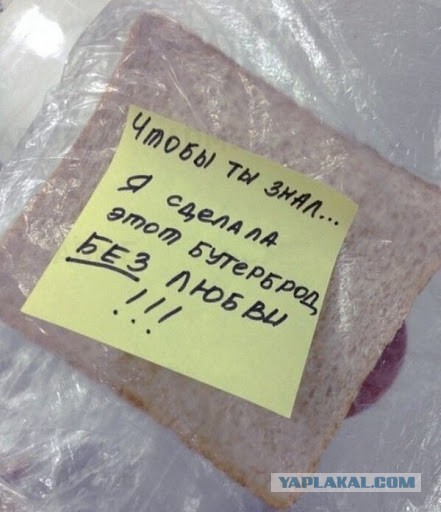 Чтобы ты знал...
Я сделала
этот бутерброд
БЕЗ любви
!!!
YAPLAKAL.COM